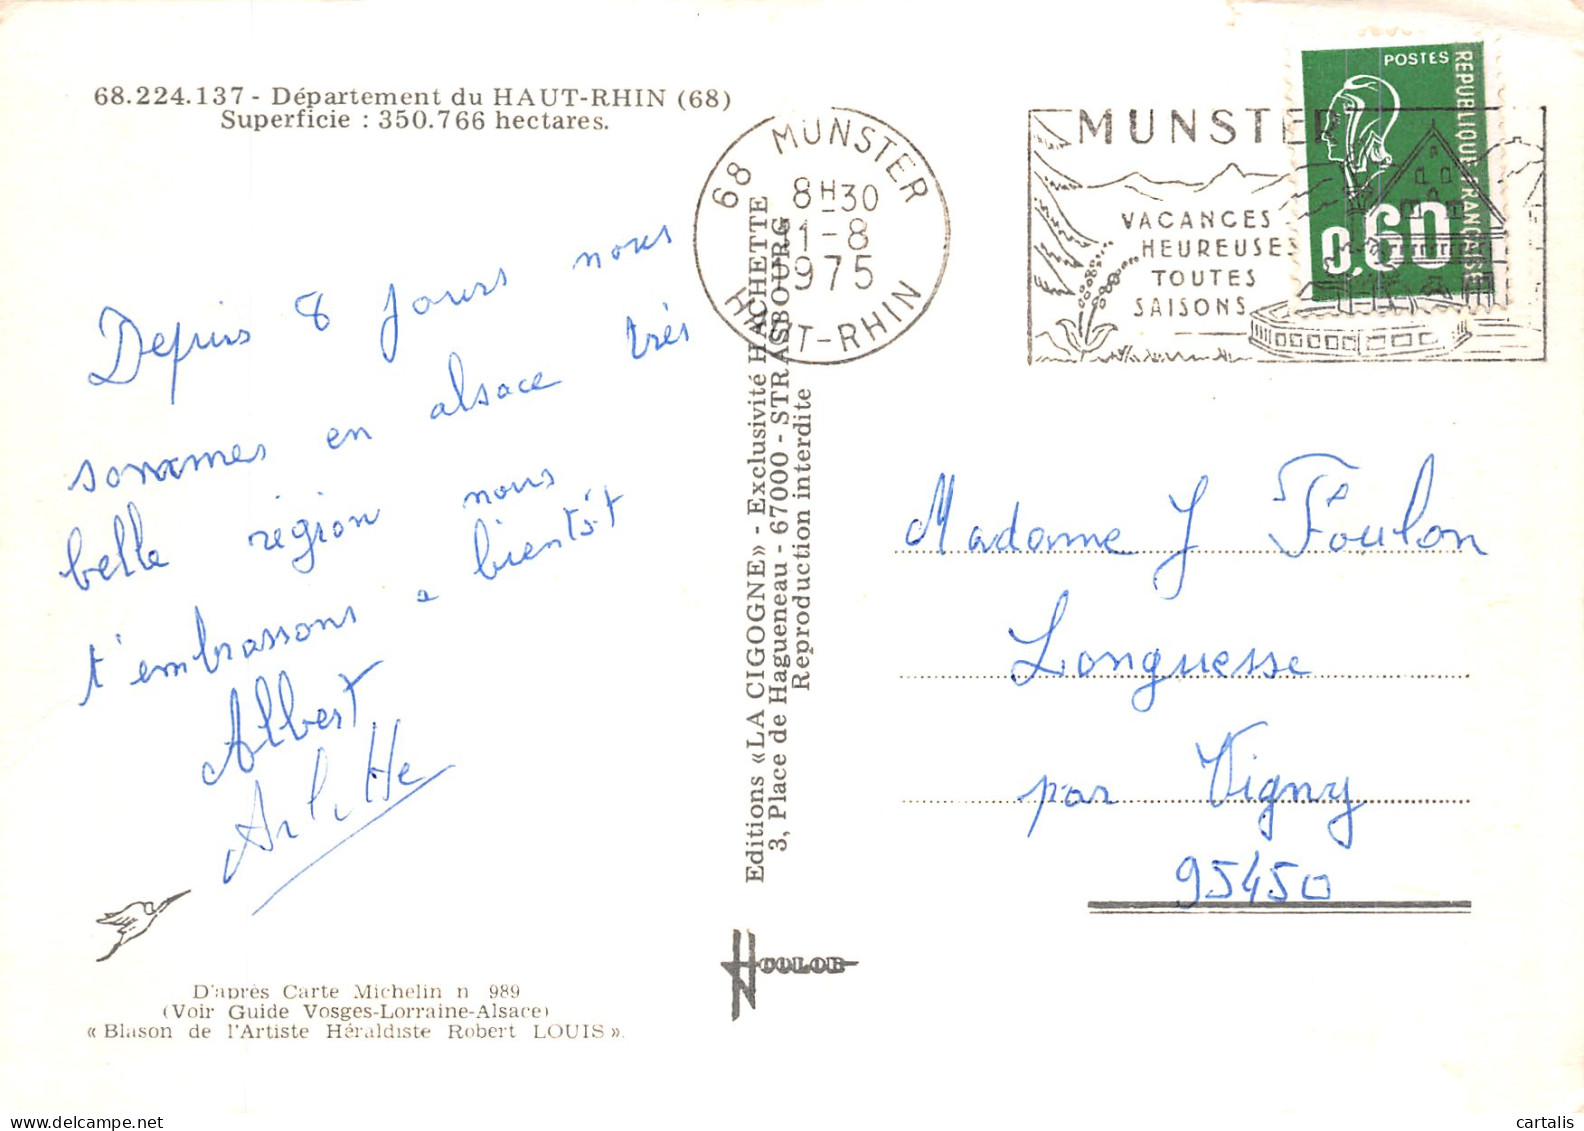 68.224.137 - Département du HAUT-RHIN (68)
Superficie : 350.766 hectares.
Depuis 8 jours nous
sommes en alsace très
belle région nous
t'embrassons a bientôt
Albert
Arlette
D'après Carte Michelin n 989
(Voir Guide Vosges-Lorraine-Alsace)
« Blason de l'Artiste Héraldiste Robert LOUIS ».
Editions «LA CIGOGNE» - Exclusivité HACHETTE
3, Place de Hagueneau - 67000 - STRASBOURG
Reproduction interdite
COLOR
68 MUNSTER
8H30
1-8
1975
HAUT-RHIN
MUNSTER
VACANCES
HEUREUSES
TOUTES
SAISONS
POSTES
REPUBLIQUE FRANCAISE
0,60
Madame J Foulon
Longuesse
par Vigny
95450
cartalis
www.delcampe.net